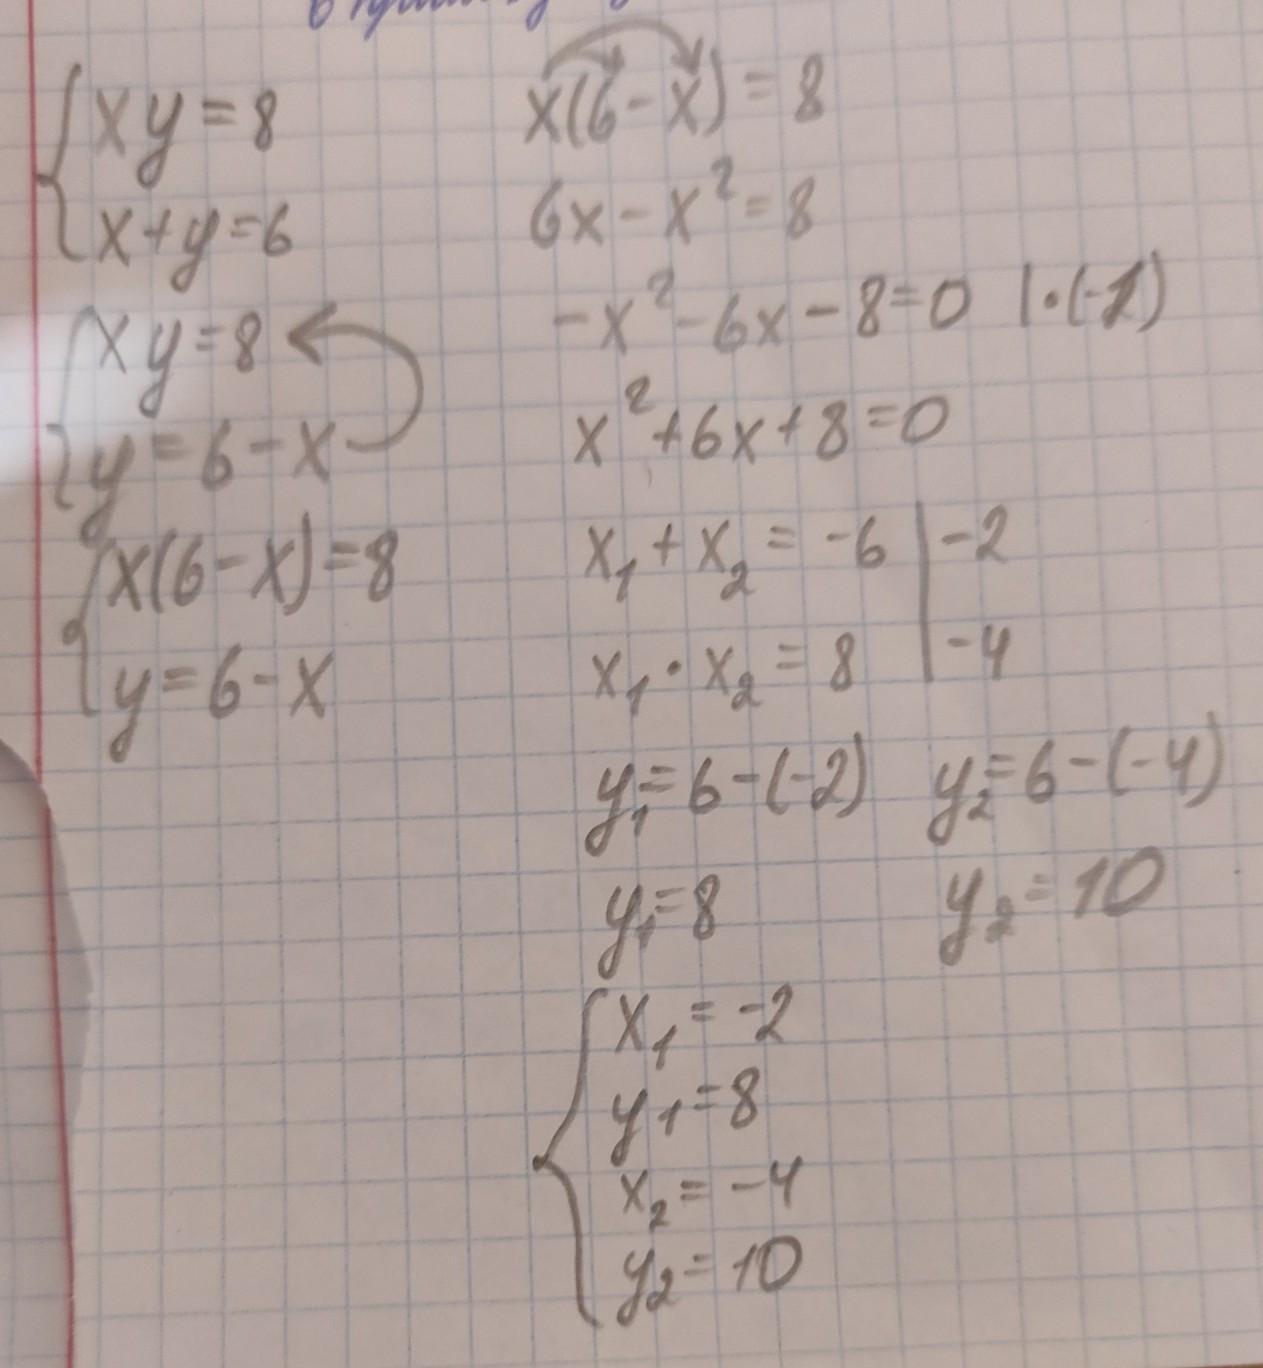 xy=8
x+y=6
xy=8
y=6-x
x(6-x)=8
y=6-x
x(6-x)=8
6x-x²=8
-x²-6x-8=0 |·(-1)
x²+6x+8=0
x₁+x₂=-6 | -2
x₁·x₂=8 | -4
y₁=6-(-2) y₂=6-(-4)
y₁=8 y₂=10
x₁=-2
y₁=8
x₂=-4
y₂=10